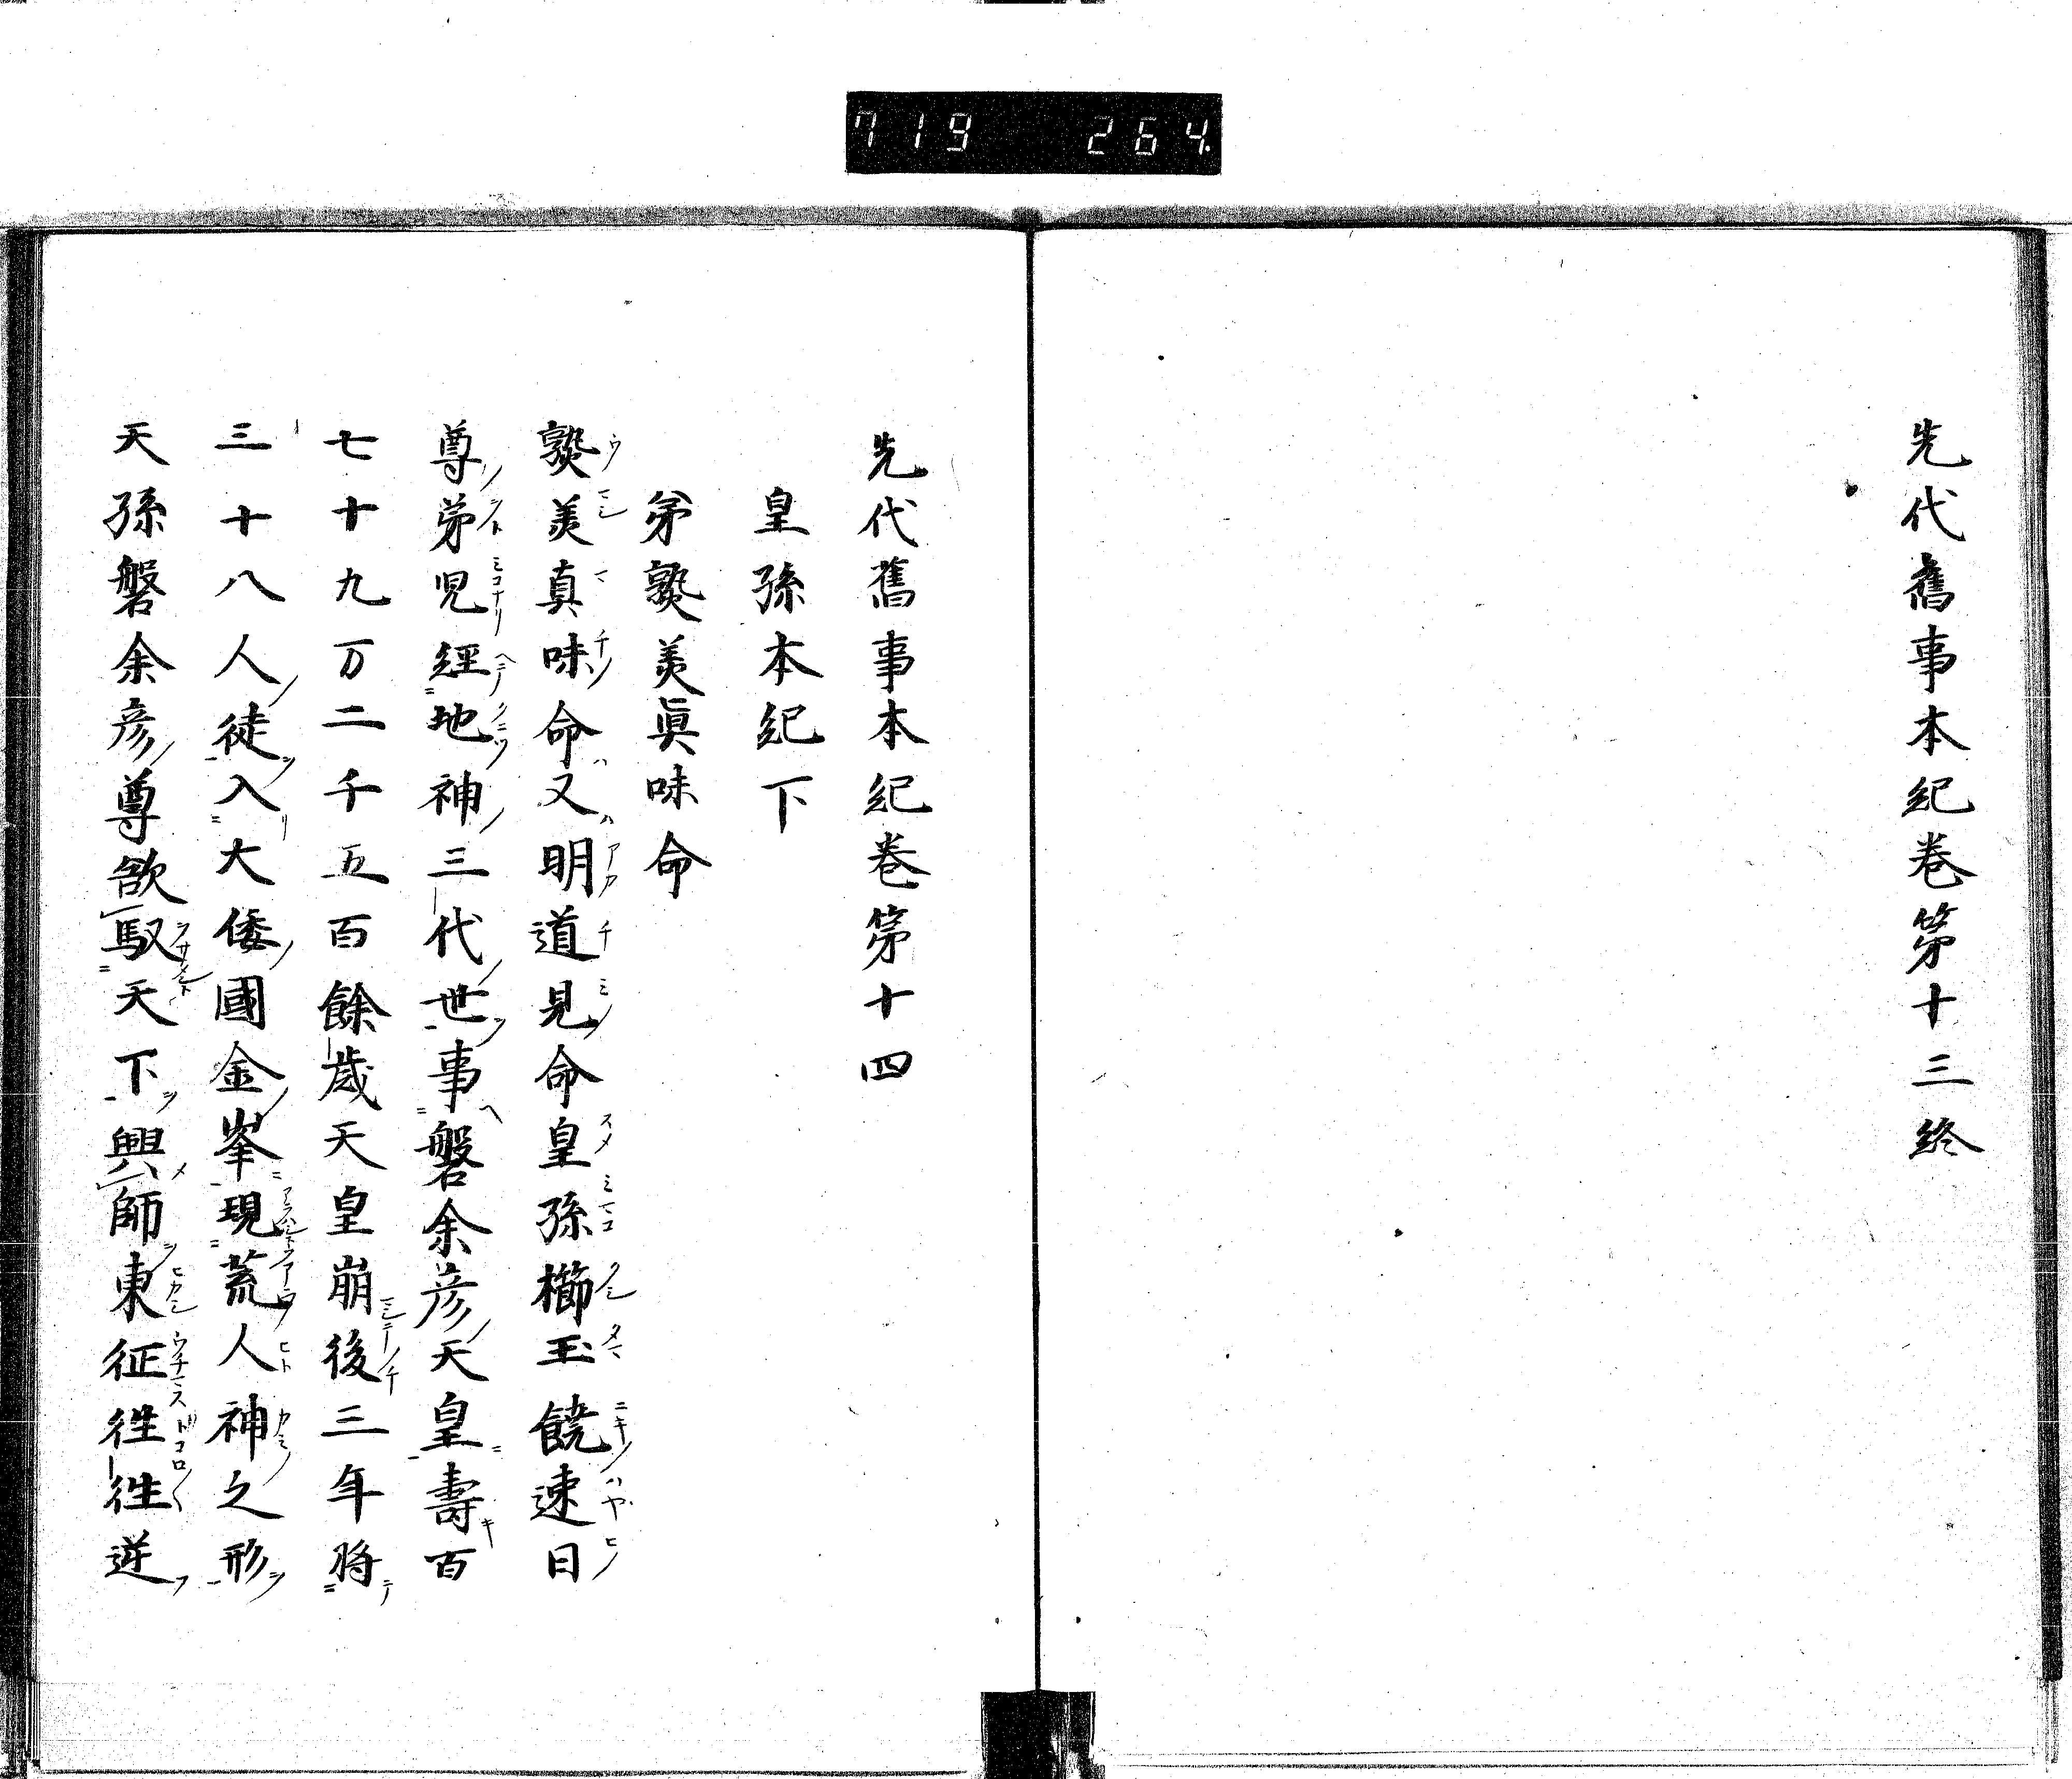 719 264.
先代舊事本紀巻第十三終
先代舊事本紀巻第十四
皇孫本紀下
弟㷟美眞味命
㷟美真味命又明道見命皇孫櫛玉饒速日
尊弟児經地神三代世事磐余彦天皇壽百
七十九万二千五百餘歳天皇崩後三年将
三十八人徒入大倭國金峯現荒人神之形
天孫磐余彦尊欲馭天下興師東征徃徃逆